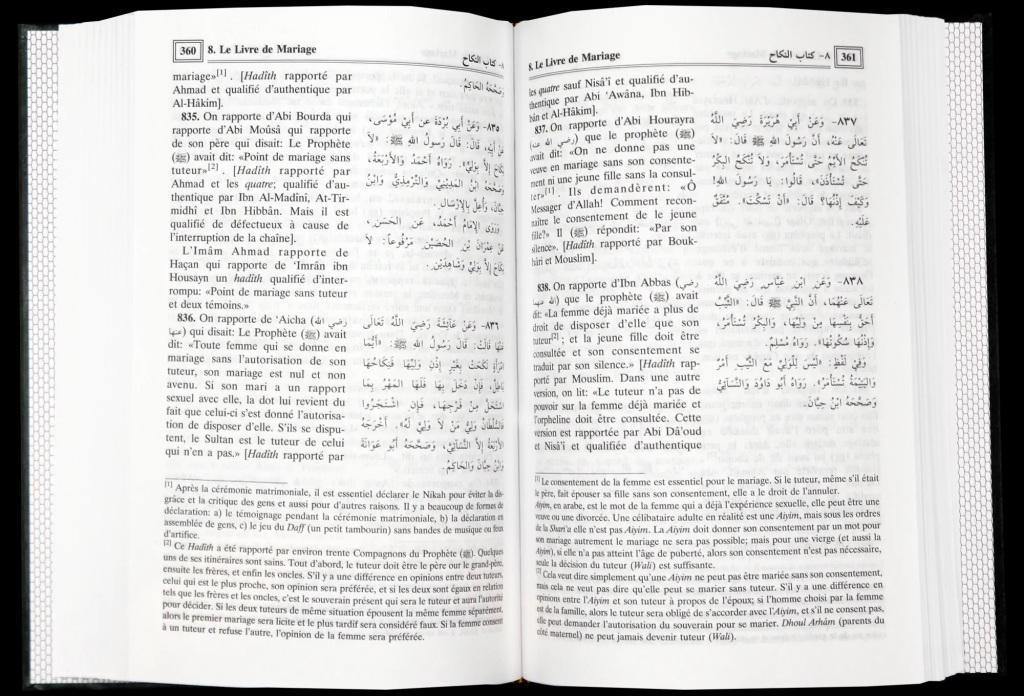 360 8. Le Livre de Mariage
٨- كتاب النكاح
mariage»[1]. [Hadîth rapporté par
Ahmad et qualifié d'authentique par
Al-Hâkim].
835. On rapporte d'Abi Bourda qui
rapporte d'Abi Moûsâ qui rapporte
de son père qui disait: Le Prophète
(ﷺ) avait dit: «Point de mariage sans
tuteur»[2]. [Hadîth rapporté par
Ahmad et les quatre; qualifié d'au-
thentique par Ibn Al-Madînî, At-Tir-
midhî et Ibn Hibbân. Mais il est
qualifié de défectueux à cause de
l'interruption de la chaîne].
L'Imâm Ahmad rapporte de
Haçan qui rapporte de 'Imrân ibn
Housayn un hadîth qualifié d'inter-
rompu: «Point de mariage sans tuteur
et deux témoins.»
836. On rapporte de 'Aicha (رضي الله
عنها) qui disait: Le Prophète (ﷺ) avait
dit: «Toute femme qui se donne en
mariage sans l'autorisation de son
tuteur, son mariage est nul et non
avenu. Si son mari a un rapport
sexuel avec elle, la dot lui revient du
fait que celui-ci s'est donné l'autorisa-
tion de disposer d'elle. S'ils se dispu-
tent, le Sultan est le tuteur de celui
qui n'en a pas.» [Hadîth rapporté par
وَصَحَّحَهُ الْحَاكِمُ.
٨٣٥- وَعَنْ أَبِي بُرْدَةَ عن أَبِي مُوْسَى،
عَنْ أَبِيْهِ، قَالَ: قَالَ رَسُولُ اللهِ ﷺ: «لاَ
نِكَاحَ إلاَّ بِوَلِيٍّ». رَوَاهُ أَحْمَدُ وَالأَرْبَعَةُ،
وَصَحَّحَهُ ابْنُ المَدِيْنِيِّ وَالتِّرْمِذِيُّ وَابْنُ
حِبَّانَ، وَأُعِلَّ بِالإِرْسَالِ.
وَرَوَى الإِمَامُ أَحْمَدُ، عَنِ الحَسَنِ،
عَنْ عِمْرَانَ بْنِ الْحُصَيْنِ، مَرْفُوعاً: لاَ
نِكَاحَ إلاَّ بِوَلِيٍّ وَشَاهِدَيْنِ.
٨٣٦- وَعَنْ عَائِشَةَ رَضِيَ اللَّهُ تَعَالَى
عَنْهَا قَالَتْ: قَالَ رَسُولُ اللهِ ﷺ: «أَيُّمَا
امْرَأَةٍ نَكَحَتْ بِغَيْرِ إِذْنِ وَلِيِّهَا فَنِكَاحُهَا
بَاطِلٌ، فَإِنْ دَخَلَ بِهَا فَلَهَا المَهْرُ بِمَا
اسْتَحَلَّ مِنْ فَرْجِهَا، فَإِنِ اشْتَجَرُوا
فَالسُّلْطَانُ وَلِيُّ مَنْ لاَ وَلِيَّ لَهُ». أَخْرَجَهُ
الأَرْبَعَةُ إلاَّ النَّسَائِيَّ، وَصَحَّحَهُ أَبُو عَوَانَةَ
وَابْنُ حِبَّانَ وَالحَاكِمُ.
[1] Après la cérémonie matrimoniale, il est essentiel déclarer le Nikah pour éviter la dis-
grâce et la critique des gens et aussi pour d'autres raisons. Il y a beaucoup de formes de
déclaration: a) le témoignage pendant la cérémonie matrimoniale, b) la déclaration en
assemblée de gens, c) le jeu du Daff (un petit tambourin) sans bandes de musique ou feux
d'artifice.
[2] Ce Hadîth a été rapporté par environ trente Compagnons du Prophète (ﷺ). Quelques
uns de ses itinéraires sont sains. Tout d'abord, le tuteur doit être le père our le grand-père,
ensuite les frères, et enfin les oncles. S'il y a une différence en opinions entre deux tuteurs,
celui qui est le plus proche, son opinion sera préférée, et si les deux sont égaux en relation
tels que les frères et les oncles, c'est le souverain présent qui sera le tuteur et aura l'autorité
pour décider. Si les deux tuteurs de même situation épousent la même femme séparément,
alors le premier mariage sera licite et le plus tardif sera considéré faux. Si la femme consent
à un tuteur et refuse l'autre, l'opinion de la femme sera préférée.
8. Le Livre de Mariage
٨- كتاب النكاح 361
les quatre sauf Nisâ'î et qualifié d'au-
thentique par Abi 'Awâna, Ibn Hib-
bân et Al-Hâkim].
837. On rapporte d'Abi Hourayra
(رضي الله عنه) que le prophète (ﷺ)
avait dit: «On ne donne pas une
veuve en mariage sans son consente-
ment ni une jeune fille sans la consul-
ter»[1]. Ils demandèrent: «Ô
Messager d'Allah! Comment recon-
naître le consentement de le jeune
fille?» Il (ﷺ) répondit: «Par son
silence». [Hadîth rapporté par Bouk-
hâri et Mouslim].
838. On rapporte d'Ibn Abbas (رضي
الله عنهما) que le prophète (ﷺ) avait
dit: «La femme déjà mariée a plus de
droit de disposer d'elle que son
tuteur[2]; et la jeune fille doit être
consultée et son consentement se
traduit par son silence.» [Hadîth rap-
porté par Mouslim. Dans une autre
version, on lit: «Le tuteur n'a pas de
pouvoir sur la femme déjà mariée et
l'orpheline doit être consultée. Cette
version est rapportée par Abi Dâ'oud
et Nisâ'î et qualifiée d'authentique
٨٣٧- وَعَنْ أَبِيْ هُرَيْرَةَ رَضِيَ اللَّهُ
تَعَالَى عَنْهُ، أَنَّ رَسُولَ اللهِ ﷺ قَالَ: «لاَ
تُنْكَحُ الأَيِّمُ حَتَّى تُسْتَأْمَرَ، وَلاَ تُنْكَحُ البِكْرُ
حَتَّى تُسْتَأْذَنَ»، قَالُوا: يَا رَسُولَ اللهِ!
وَكَيْفَ إِذْنُهَا؟ قَالَ: «أَنْ تَسْكُتَ». مُتَّفَقٌ
عَلَيْهِ.
٨٣٨- وَعَنِ ابْنِ عَبَّاسٍ رَضِيَ اللَّهُ
تَعَالَى عَنْهُمَا، أَنَّ النَّبِيَّ ﷺ قَالَ: «الثَّيِّبُ
أَحَقُّ بِنَفْسِهَا مِنْ وَلِيِّهَا، وَالبِكْرُ تُسْتَأْمَرُ،
وَإِذْنُهَا سُكُوتُهَا». رَوَاهُ مُسْلِمٌ.
وَفِي لَفْظٍ: «لَيْسَ لِلْوَلِيِّ مَعَ الثَّيِّبِ أَمْرٌ
وَالْيَتِيْمَةُ تُسْتَأْمَرُ». رَوَاهُ أَبُو دَاوُدَ وَالنَّسَائِيُّ
وَصَحَّحَهُ ابْنُ حِبَّانَ.
[1] Le consentement de la femme est essentiel pour le mariage. Si le tuteur, même s'il était
le père, fait épouser sa fille sans son consentement, elle a le droit de l'annuler.
Aiyim, en arabe, est le mot de la femme qui a déjà l'expérience sexuelle, elle peut être une
veuve ou une divorcée. Une célibataire adulte en réalité est une Aiyim, mais sous les ordres
de la Shari'a elle n'est pas Aiyim. La Aiyim doit donner son consentement par un mot pour
son mariage autrement le mariage ne sera pas possible; mais pour une vierge (et aussi la
Aiyim), si elle n'a pas atteint l'âge de puberté, alors son consentement n'est pas nécessaire,
seule la décision du tuteur (Wali) est suffisante.
[2] Cela veut dire simplement qu'une Aiyim ne peut pas être mariée sans son consentement,
mais cela ne veut pas dire qu'elle peut se marier sans tuteur. S'il y a une différence en
opinions entre l'Aiyim et son tuteur à propos de l'époux; si l'homme choisi par la femme
est de la famille, alors le tuteur sera obligé de s'accorder avec l'Aiyim, et s'il ne consent pas,
elle peut demander l'autorisation du souverain pour se marier. Dhoul Arhâm (parents du
côté maternel) ne peut jamais devenir tuteur (Wali).